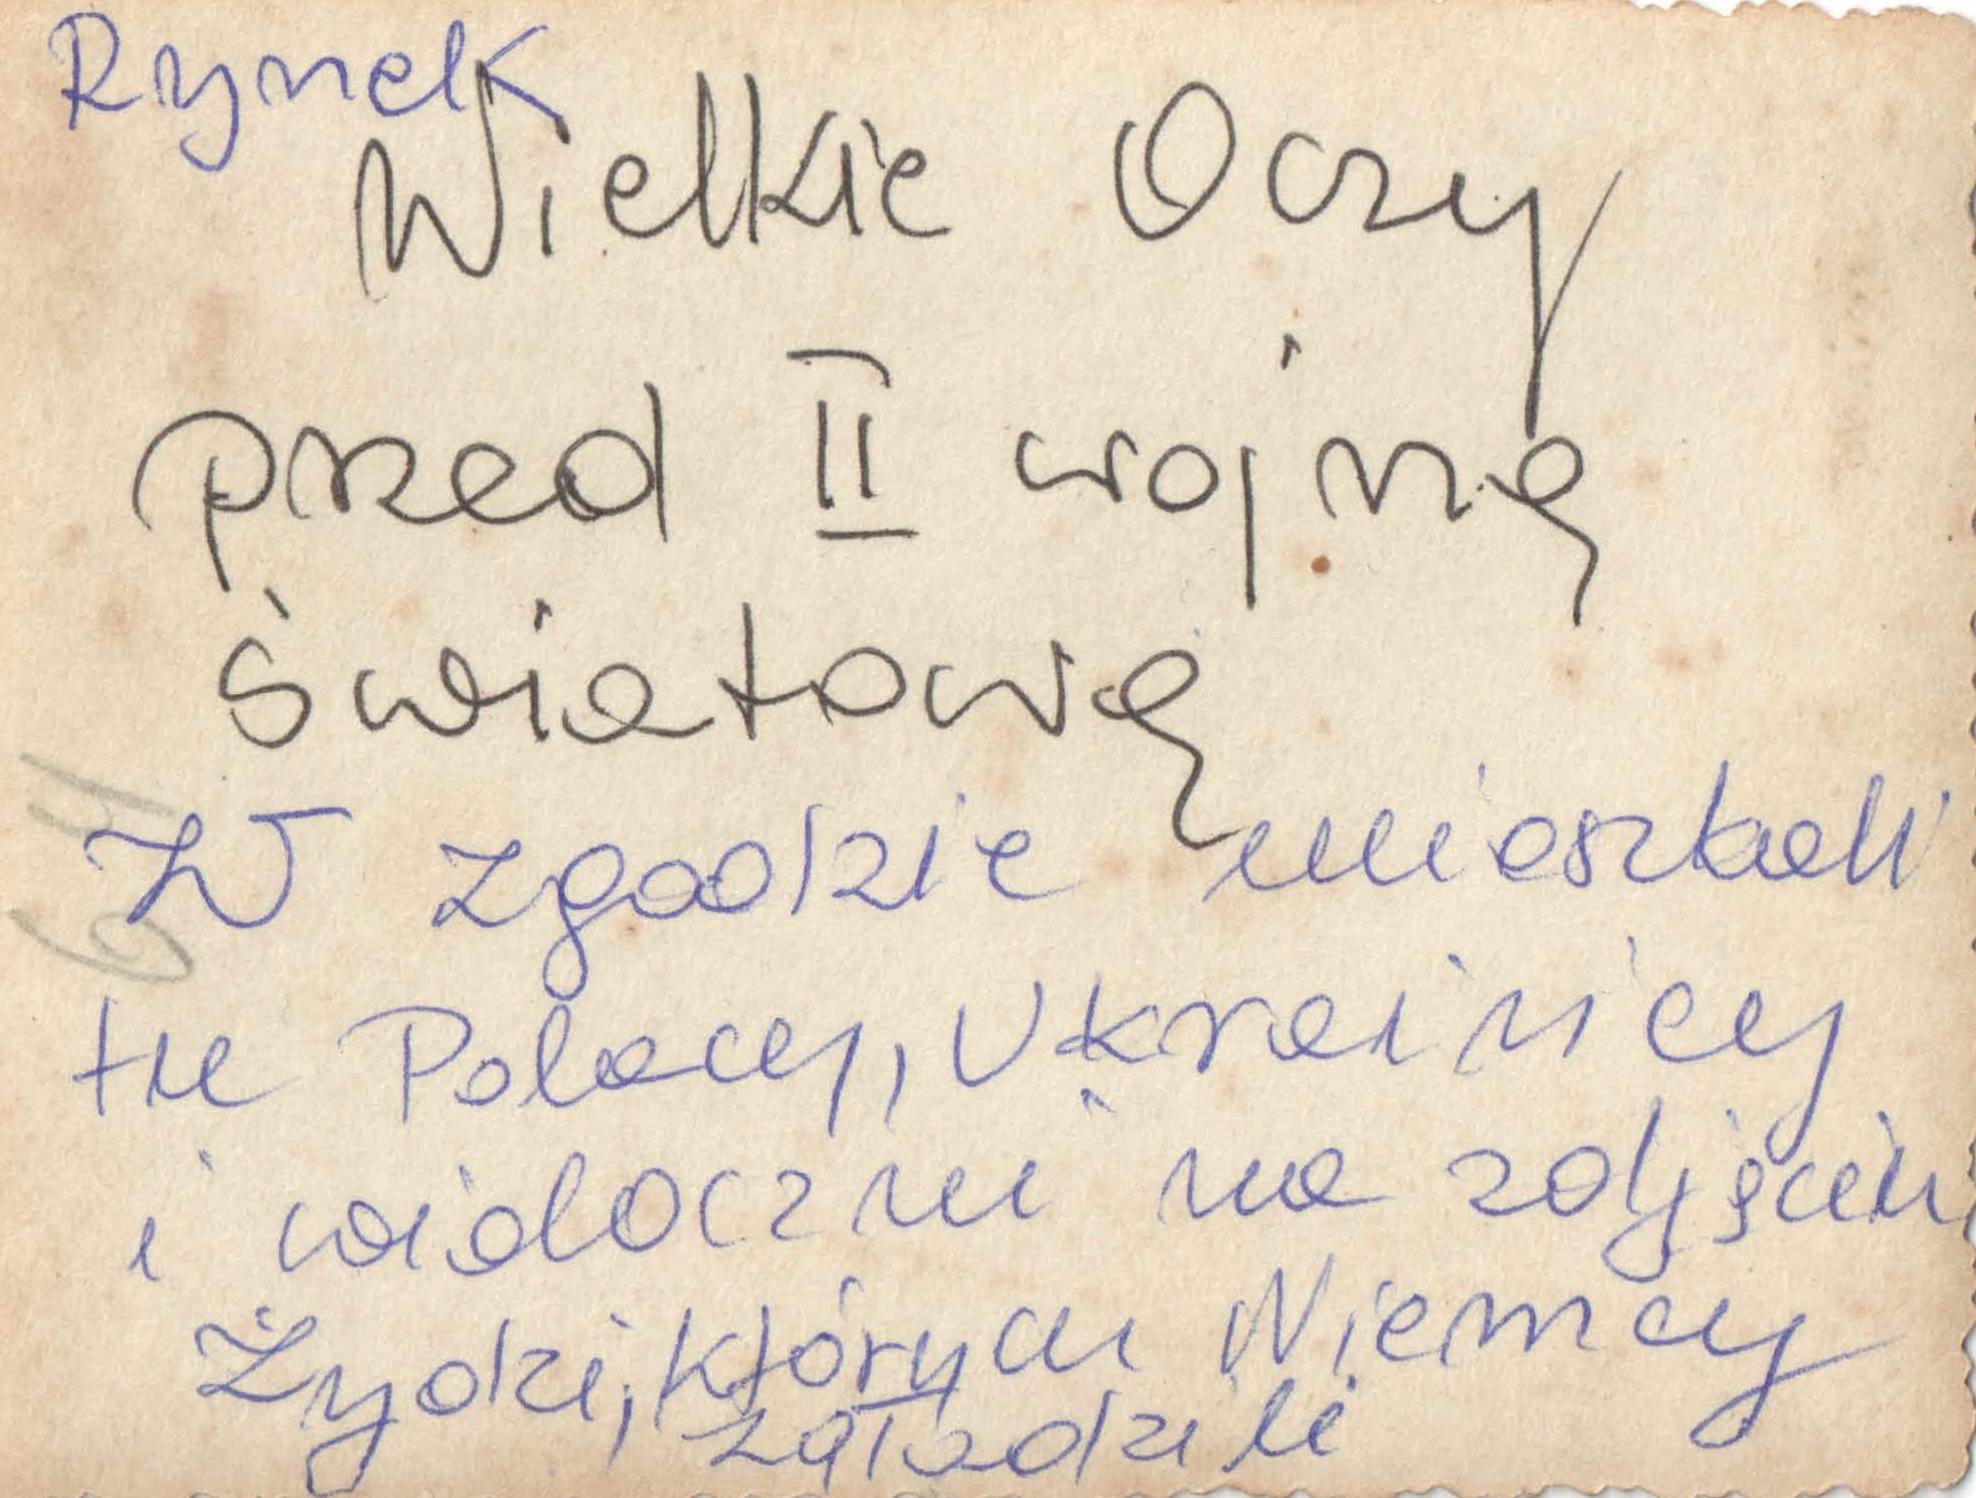 Rynek
Wielkie Oczy
przed II wojną
światową
W zgodzie mieszkali
tu Polacy, Ukraińcy
i widoczni na zdjęciu
Żydzi, których Niemcy
zgładzili